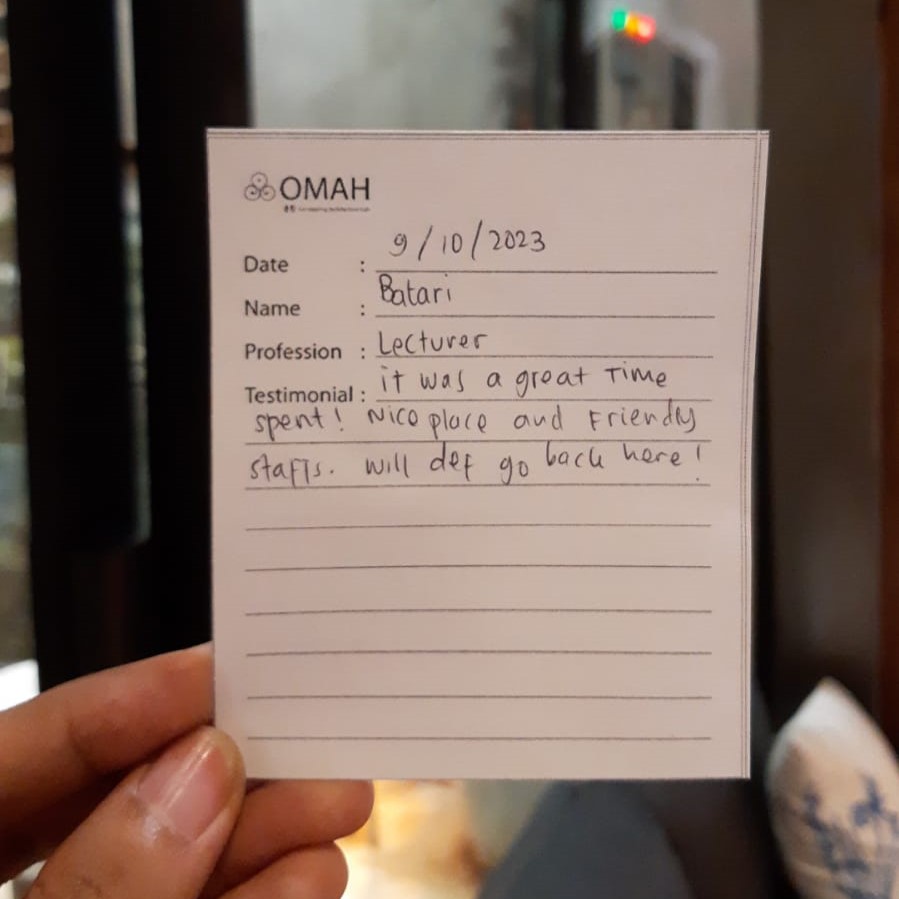 OMAH
Date : 9/10/2023
Name : Batari
Profession : Lecturer
Testimonial : it was a great Time
spent! Nice place and Friendly
staffs. will def go back here!